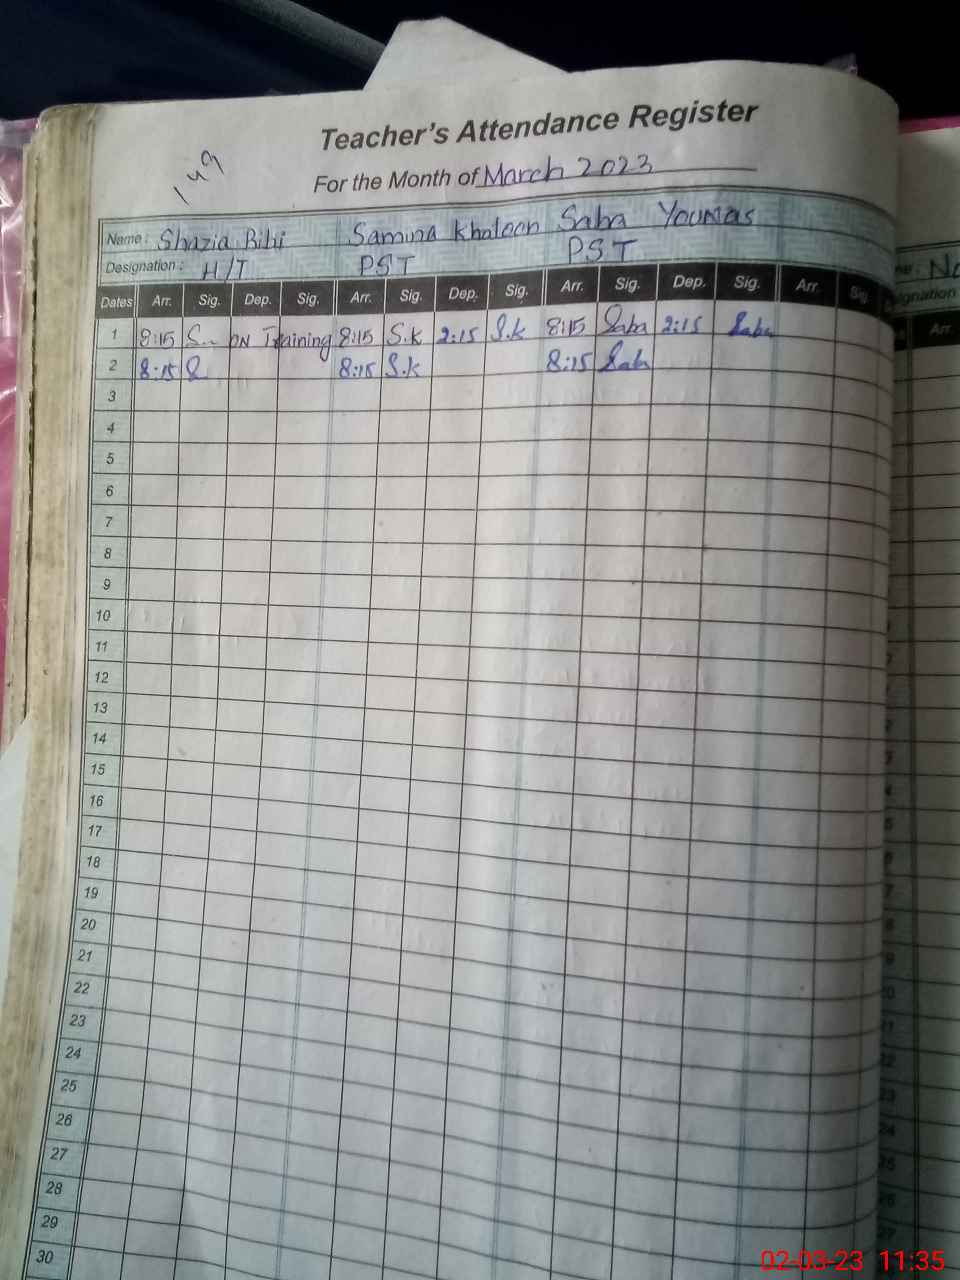 Teacher's Attendance Register
149
For the Month of March 2023
Name: Shazia Bibi Samina Khatoon Saba Younas
Designation: H/T PST PST
Dates Arr. Sig. Dep. Sig. Arr. Sig. Dep. Sig. Arr. Sig. Dep. Sig. Arr. Sig.
1 8:15 S.. on Training 8:15 S.k 2:15 S.k 8:15 Saba 2:15 Saba
2 8:15 8:15 S.k 8:15 Sab
3
4
5
6
7
8
9
10
11
12
13
14
15
16
17
18
19
20
21
22
23
24
25
26
27
28
29
30
No
ignation
Arr.
02-03-23 11:35